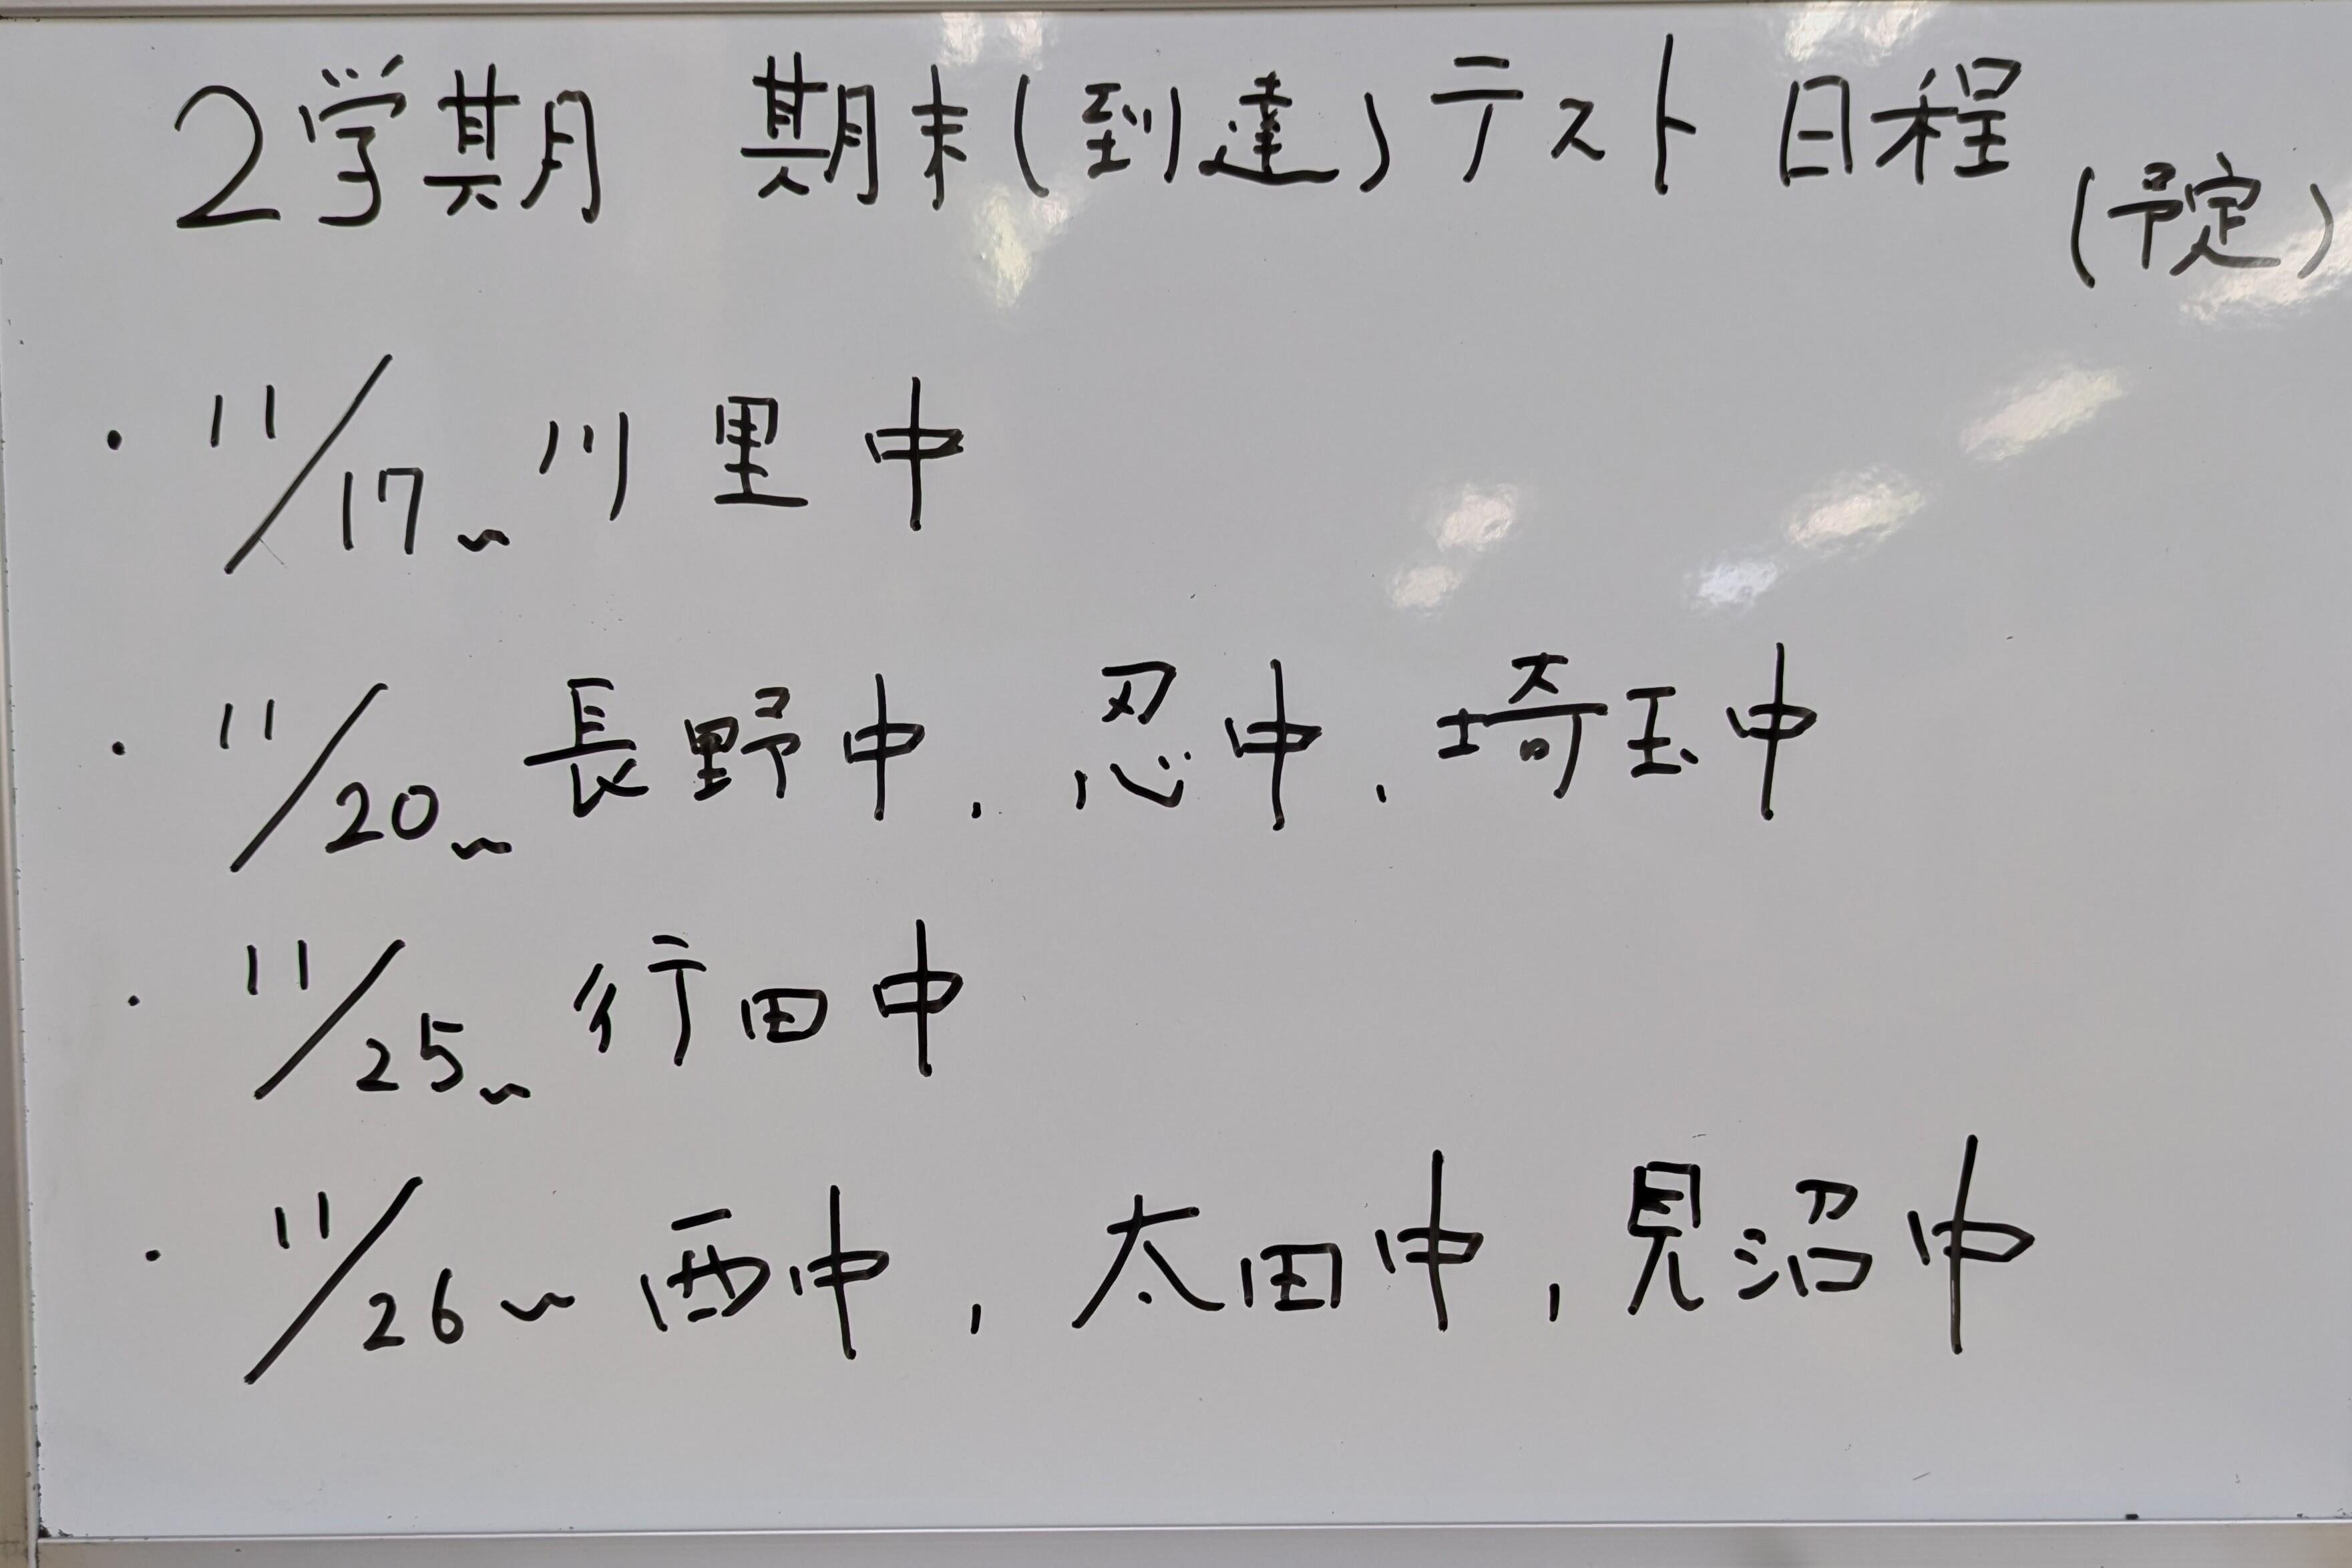 2学期 期末(到達)テスト日程(予定)
・11/17～川里中
・11/20～長野中，忍中，埼玉中
・11/25～行田中
・11/26～西中，太田中，見沼中